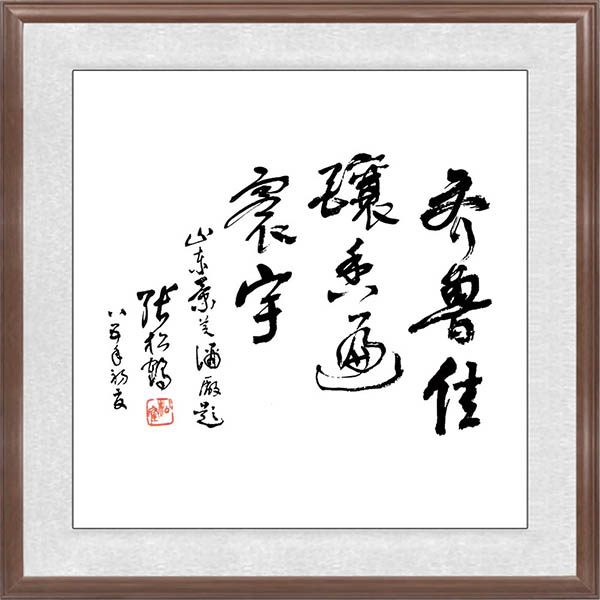 齐鲁佳
釀香遍
寰宇
山东景芝酒厰题
张松鹤
八五年初夏
松鹤